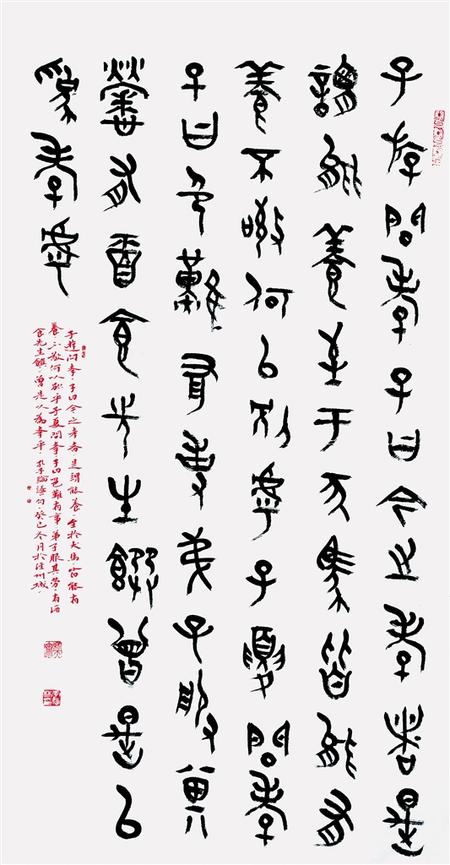 子游問孝子曰今之孝者是
謂能養至于犬馬皆能有
養不敬何以別乎子夏問孝
子曰色難有事弟子服其
勞有酒食先生饌曾是以
為孝乎
子游问孝，子曰今之孝者是謂能养，至於犬馬皆能有
養不敬何以别乎子夏问孝子曰色難有事弟子服其劳有酒
食先生饌，曾是以為孝乎。孔子論語句，癸巳冬月於州城